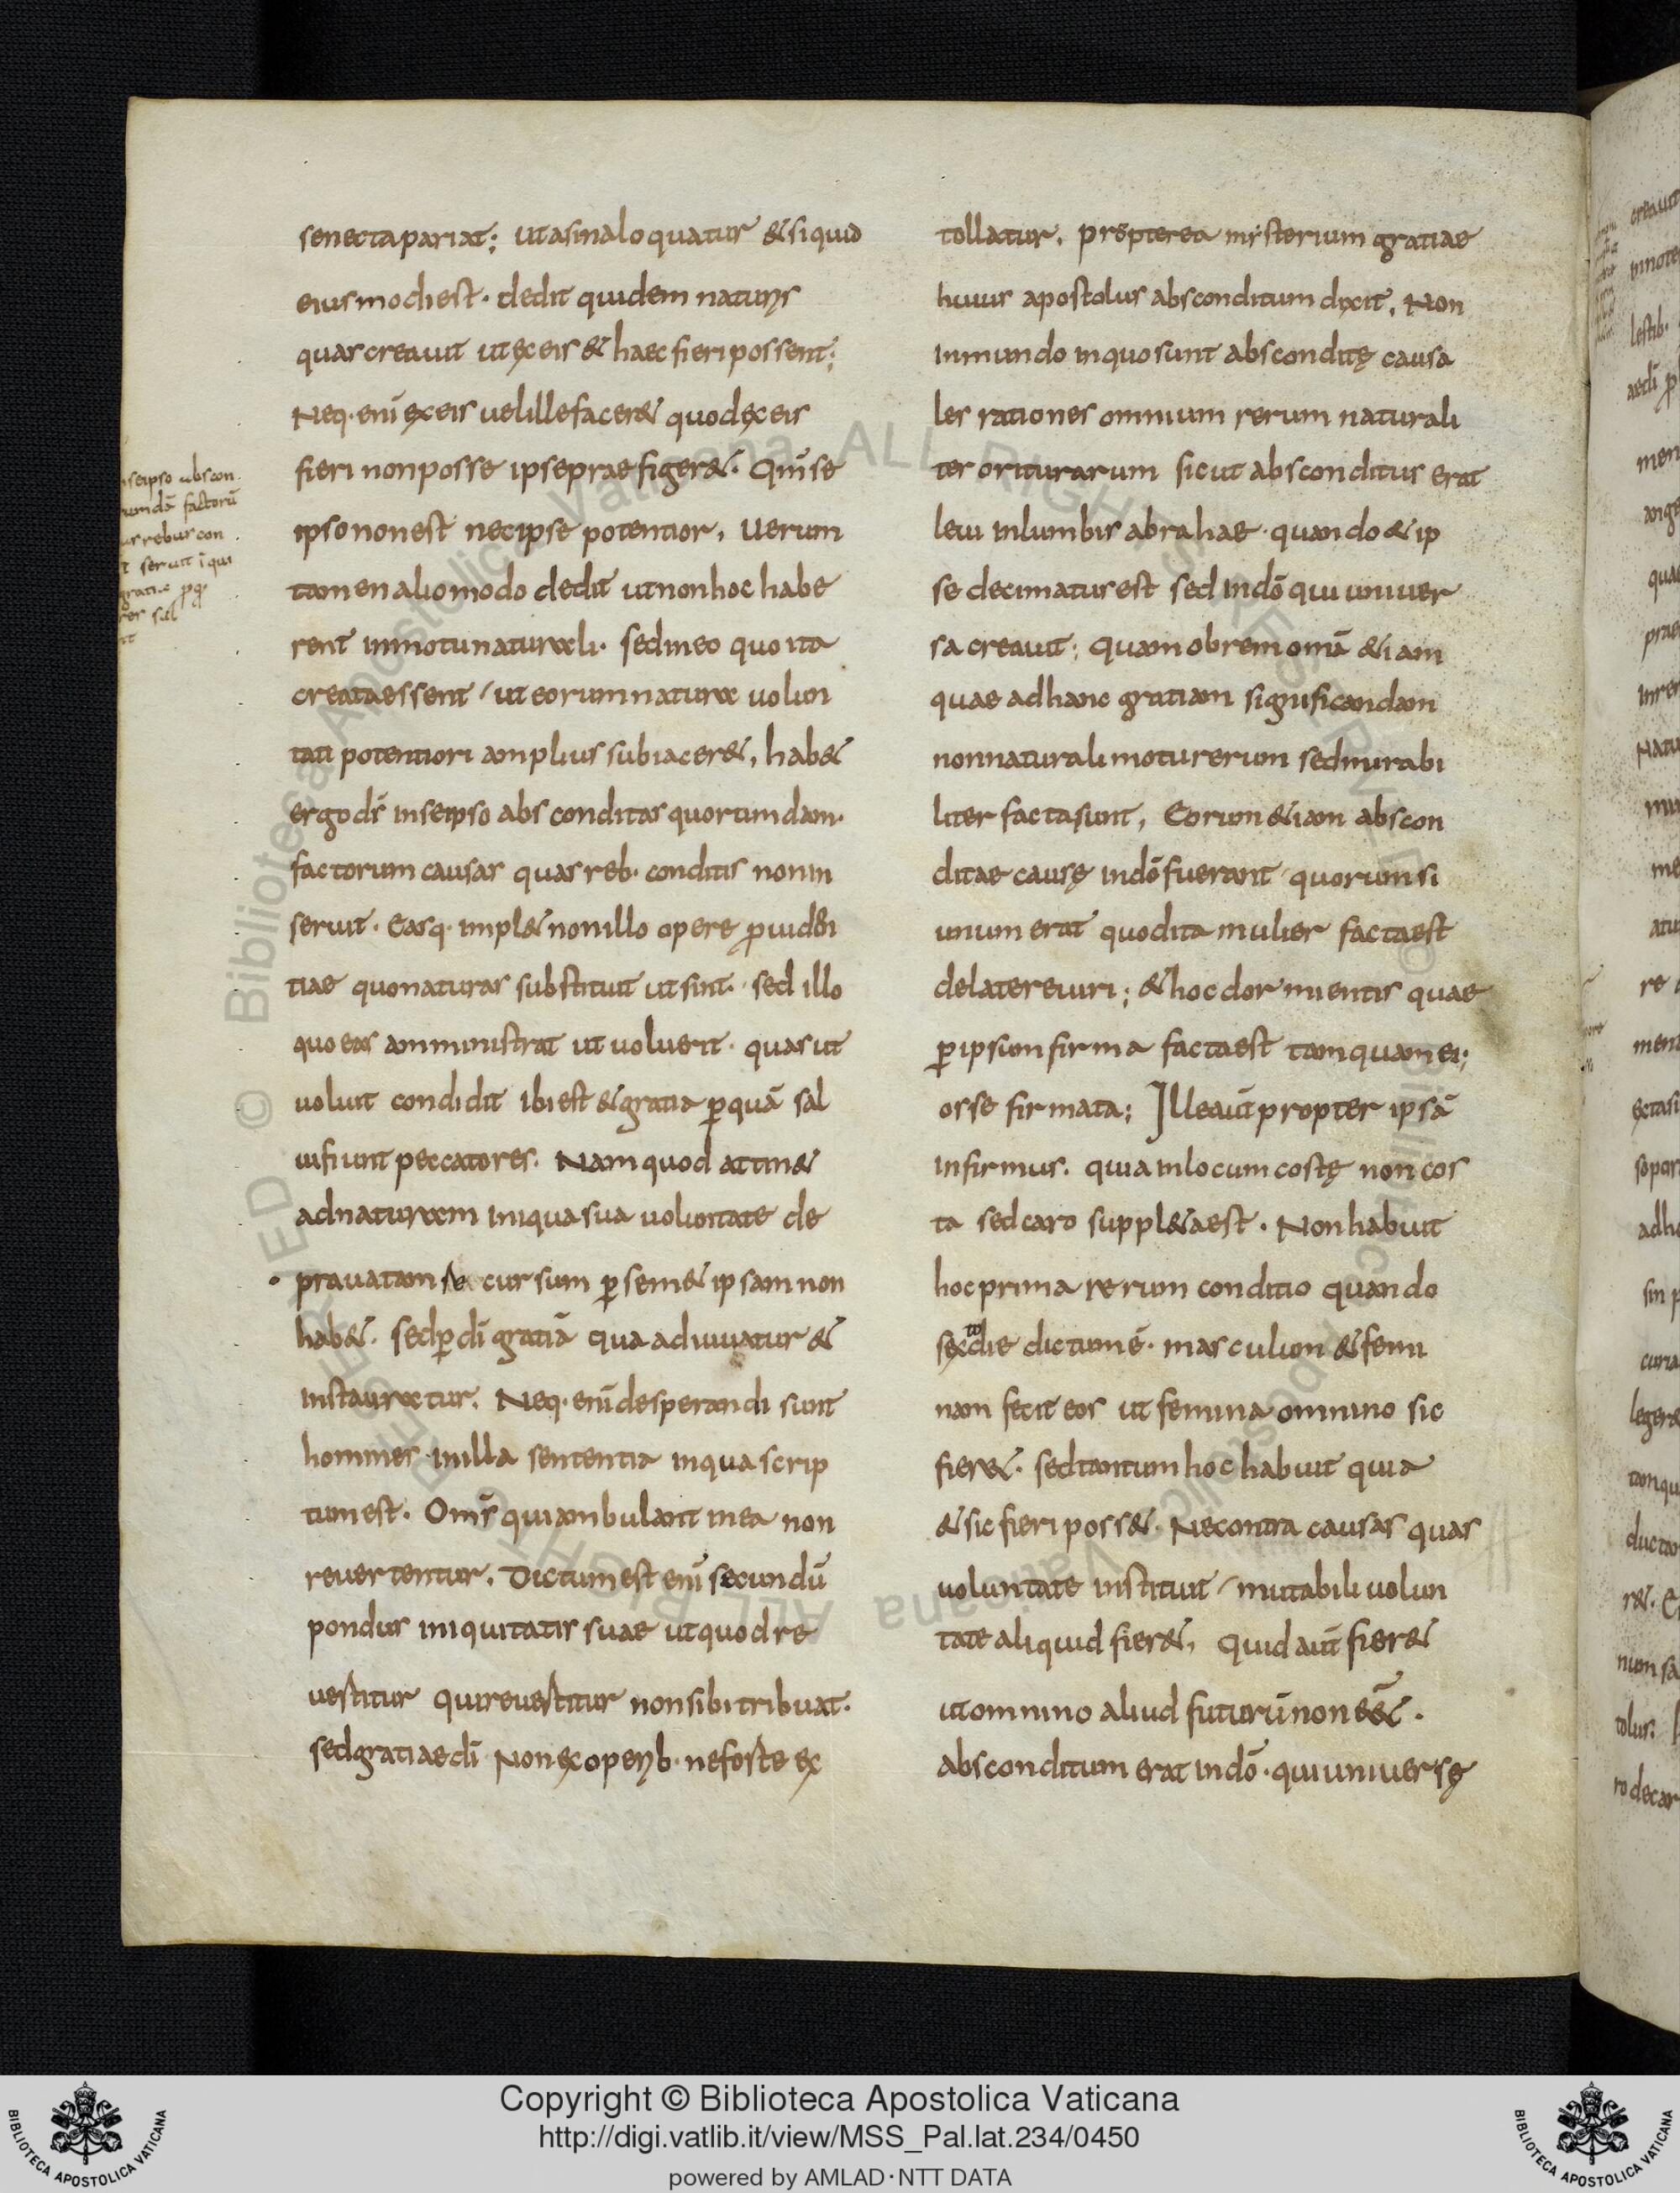 senecta pariat; ut asina loquatur & siquid
eiusmodi est· dedit quidem naturis
quas creauit ut ex eis & haec fieri possent;
Neq· eni᷑ ex eis uel ille facer& quod ex eis
fieri non posse ipse praefiger&· Qm̄ se
ipso non est nec ipse potentior, Uerum
tamen alio modo dedit ut non hoc habe
rent in motu naturali· sed in eo quo ita
creata essent / ut eorum natura uolun
tati potentiori amplius subiacer&, hab&
ergo ds̄ in se ipso absconditas quorundam·
factorum causas quas reb· conditis non in
seruit· Easq· impl& non illo opere ꝓuiden
tiae quo naturas substituit ut sint· sed illo
quo eas amministrat ut uoluerit· quas ut
uoluit condidit ibi est & gratia ꝑ quā sal
ui fiunt peccatores· Nam quod attin&
ad naturam iniqua sua uoluntate de
prauatam re cursum ꝑ sem& ipsam non
hab&· sed ꝑ dī gratiā qua adiuuatur &
instauratur· Neq· enī desperandi sunt
homines in illa sententia in qua scrip
tum est· Oms̄ qui ambulant in ea non
reuertentur, Dictum est enī secundū
pondus iniquitatis suae ut quod re
uestitur qui reuestitur non sibi tribuat·
sed gratiae dī Non ex operib· ne forte ex
tollatur, propterea mysterium gratiae
huius apostolus absconditum dixit, Non
in mundo in quo sunt abscondite̜ causa
les rationes omnium rerum naturali
ter oriturarum sicut absconditus erat
leui in lumbis abrahae· quando & ip
se decimatus est sed in dō qui uniuer
sa creauit; Quam obrem omā &iam
quae ad hanc gratiam significandam
non naturali motu rerum sed mirabi
liter facta sunt, Eorum &iam abscon
ditae cause̜ in dō fuerant quorum si
unum erat quod ita mulier facta est
de latere uiri; & hoc dormientis quae
ꝑ ipsum firma facta est tamquam ei;
osse firmata; Ille aut̄ propter ipsā
infirmus· quia in locum coste̜ non cos
ta sed caro suppl&a est· Non habuit
hoc prima rerum conditio quando
sexto die dictum ē· masculum & femi
nam fecit eos ut femina omnino sic
fier&· sed tantum hoc habuit quia
& sic fieri poss&· Ne contra causas quas
uoluntate instituit / mutabili uolun
tate aliquid fier&, Quid aut̄ fier&
ut omnino aliud futurū non ee&·
absconditum erat in dō· qui uniuerse̜
seipso abscon
factorū
rebus con
seruit
Copyright © Biblioteca Apostolica Vaticana
http://digi.vatlib.it/view/MSS_Pal.lat.234/0450
powered by AMLAD·NTT DATA
BIBLIOTECA APOSTOLICA VATICANA
BIBLIOTECA APOSTOLICA VATICANA